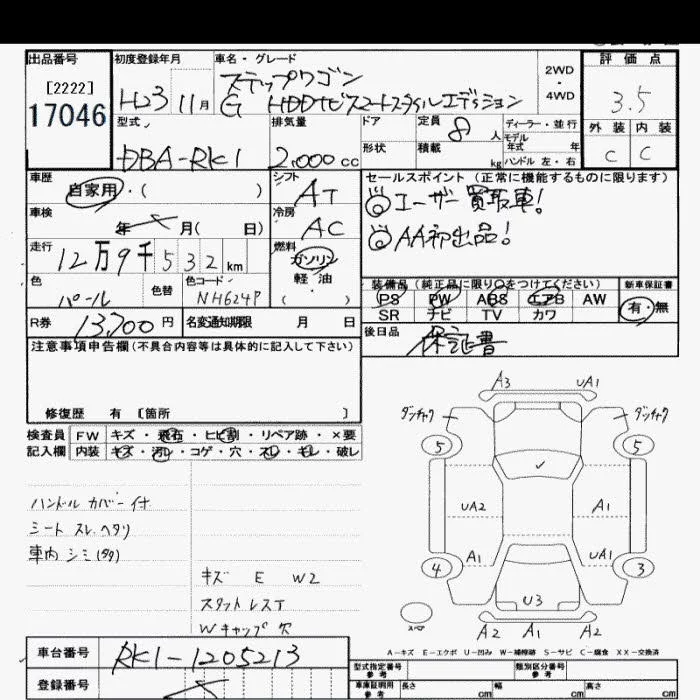 出品番号 初度登録年月 車名・グレード 評価点
[2222] ステップワゴン 2WD
・
17046 H23 11月 G HDDナビスマートスタイルエディション 4WD 3.5
型式 排気量 ドア 定員 8人 ディーラー・並行 外装 内装
モデル
年式 年
DBA-RK1 2,000cc 形状 積載 kg ハンドル 左・右 C C
車歴 シフト セールスポイント (正常に機能するものに限ります)
自家用・( ) AT ◎ユーザー買取車!
車検 冷房
年 月( 日) AC ◎AA初出品!
走行 燃料
12万9千532km ガソリン
色 色替 色コード 軽油 装備品 (純正品に限り○をつけてください) 新車保証書
パール NH624P ・( ) PS PW ABS エアB AW 有・無
SR ナビ TV カワ
R券 13,700円 名変通知期限 月 日 後日品 保証書
注意事項申告欄 (不具合内容等は具体的に記入して下さい)
修復歴 有 [箇所 ]
A3 UA1
ダンチャク ダンチャク
検査員 FW キズ・飛石・ヒビ割・リペア跡・×要
記入欄 内装 キズ・汚レ・コゲ・穴・スレ・キレ・破レ
5 5
ハンドルカバー付
シートスレ、ヘタリ
車内シミ(多)
UA2 A1
A1 UA1
4 3
キズ E W2
スタットレスT
Wキャップ欠
U3
スペア
A2 A1 A2
A-キズ E-エクボ U-凹み W-補修跡 S-サビ C-腐食 XX-交換済
車台番号 RK1-1205213
登録番号
型式指定番号 類別区分番号
参考 参考
車庫証明用 長さ cm 幅 cm 高さ cm
参考